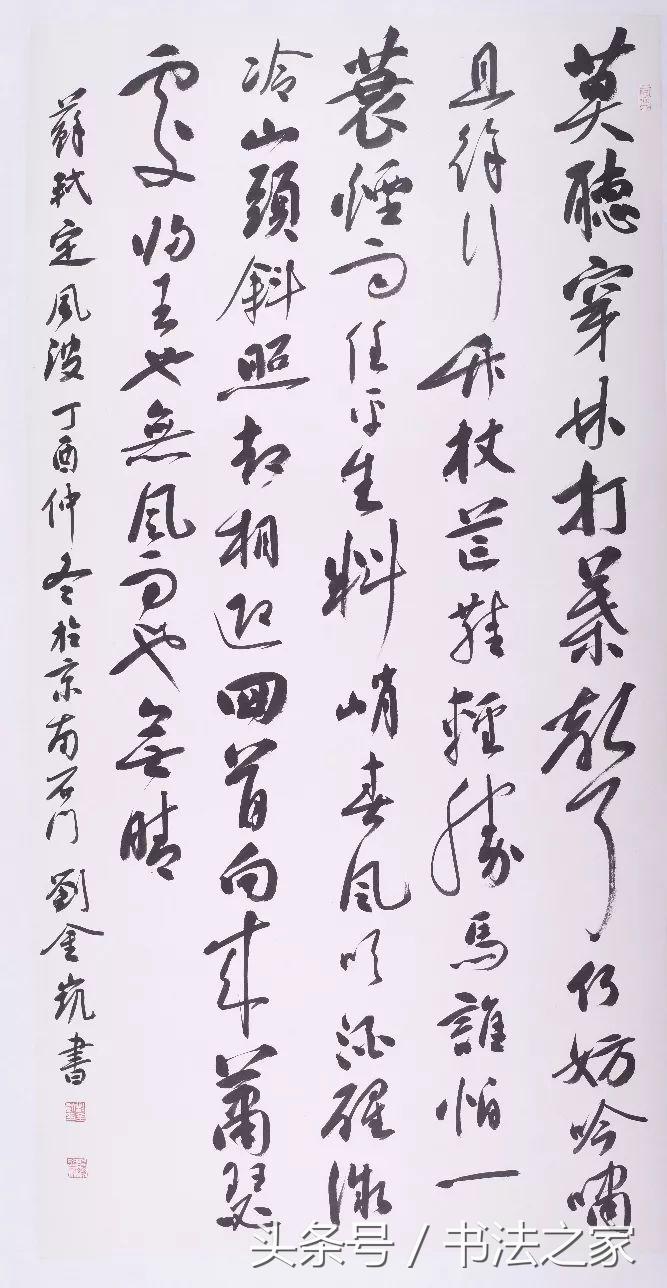 莫聽穿林打葉聲何妨吟嘯
且徐行竹杖芒鞋輕勝馬誰怕一
蓑煙雨任平生料峭春風吹酒醒微
冷山頭斜照却相迎回首向來蕭瑟
處归去也無風雨也無晴
蘇軾定風波丁酉仲冬於京南石门劉金凱書
头条号 / 书法之家